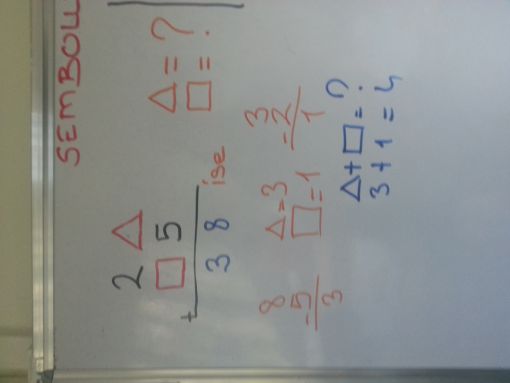 SEMBOL
2 △
+ □ 5
3 8 ise
△ = ?
□ = ?
8
-5
3
△=3
□=1
3
-2
1
△+□=?
3+1=4